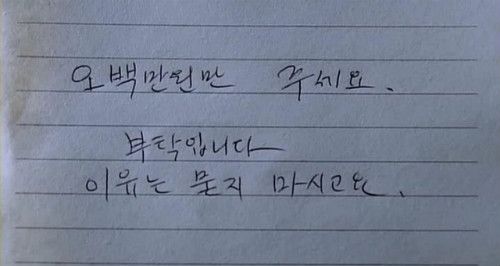 오백만원만 주세요.
부탁입니다
이유는 묻지 마시고요.